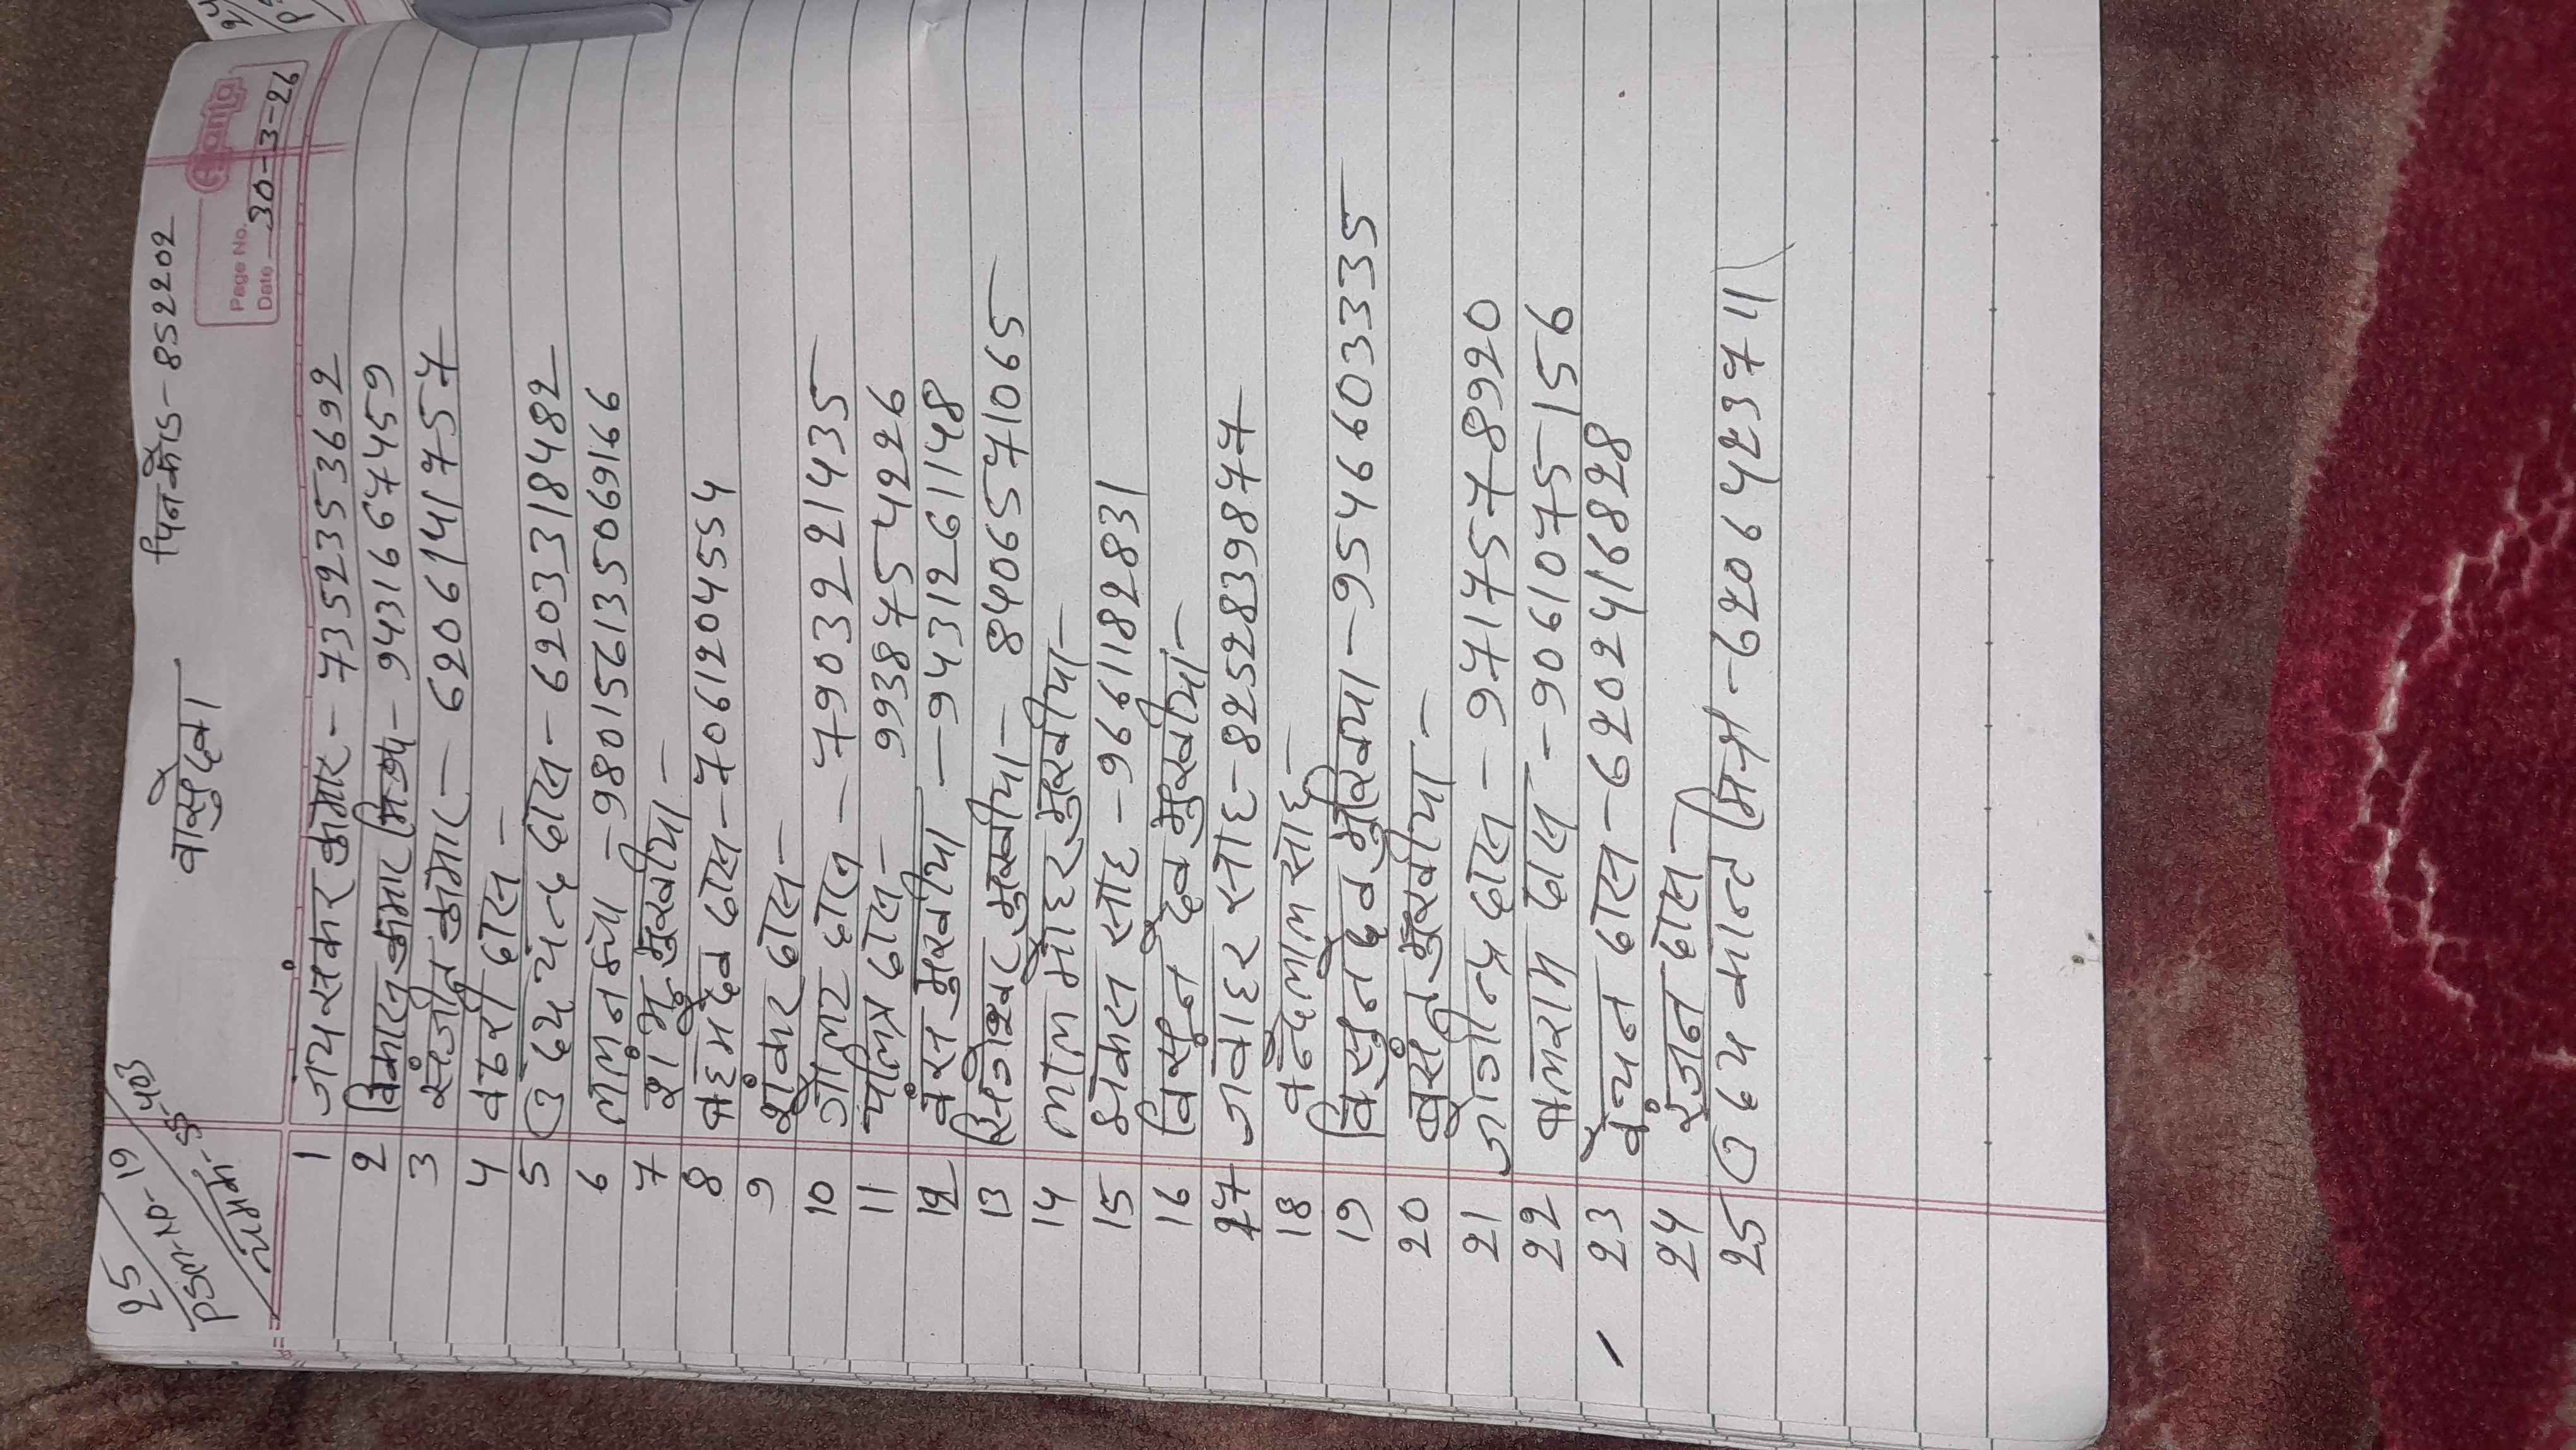 25
PSM-NO-19
संघर्ष-5-403
वासुदेवा पिनकोड-852202
Page No.
Date 30-3-26
1 जय सकर कुमार - 7352353692
2 विकास कुमार मिश्र - 9431667459
3 संजीत कुमार - 6206141757
4 बदरी दास -
5 उदय चन्द्र दास - 6203318482
6 ललन - 980156135069166
7 शंभू मुखीया -
8 ब्रहमदेव दास - 7061204554
9 शंकर दास -
10 गोलट दास - 7903221435
11 पलित्र दास - 9938754226
12 बंस मुखीया - 9431261148
13 सिंगेश्वर मुखीया - 8406571065
14 लाल मोहर मुखीया -
15 साह - 9661182831
16 विसुन देव मुखीया -
17 जवाहर साह - 8252839877
18 नन्दलाल साह -
19 विसुनदेव मुखिया - 9546603335
20 बसंत मुखीया -
21 जोगीन्द्र दास - 9717578920
22 बलराम दास - 9061075156
23 बेचन दास - 6202416828
24 रंजन दास -
25 उदय कान्त मिश्र - 6206423711